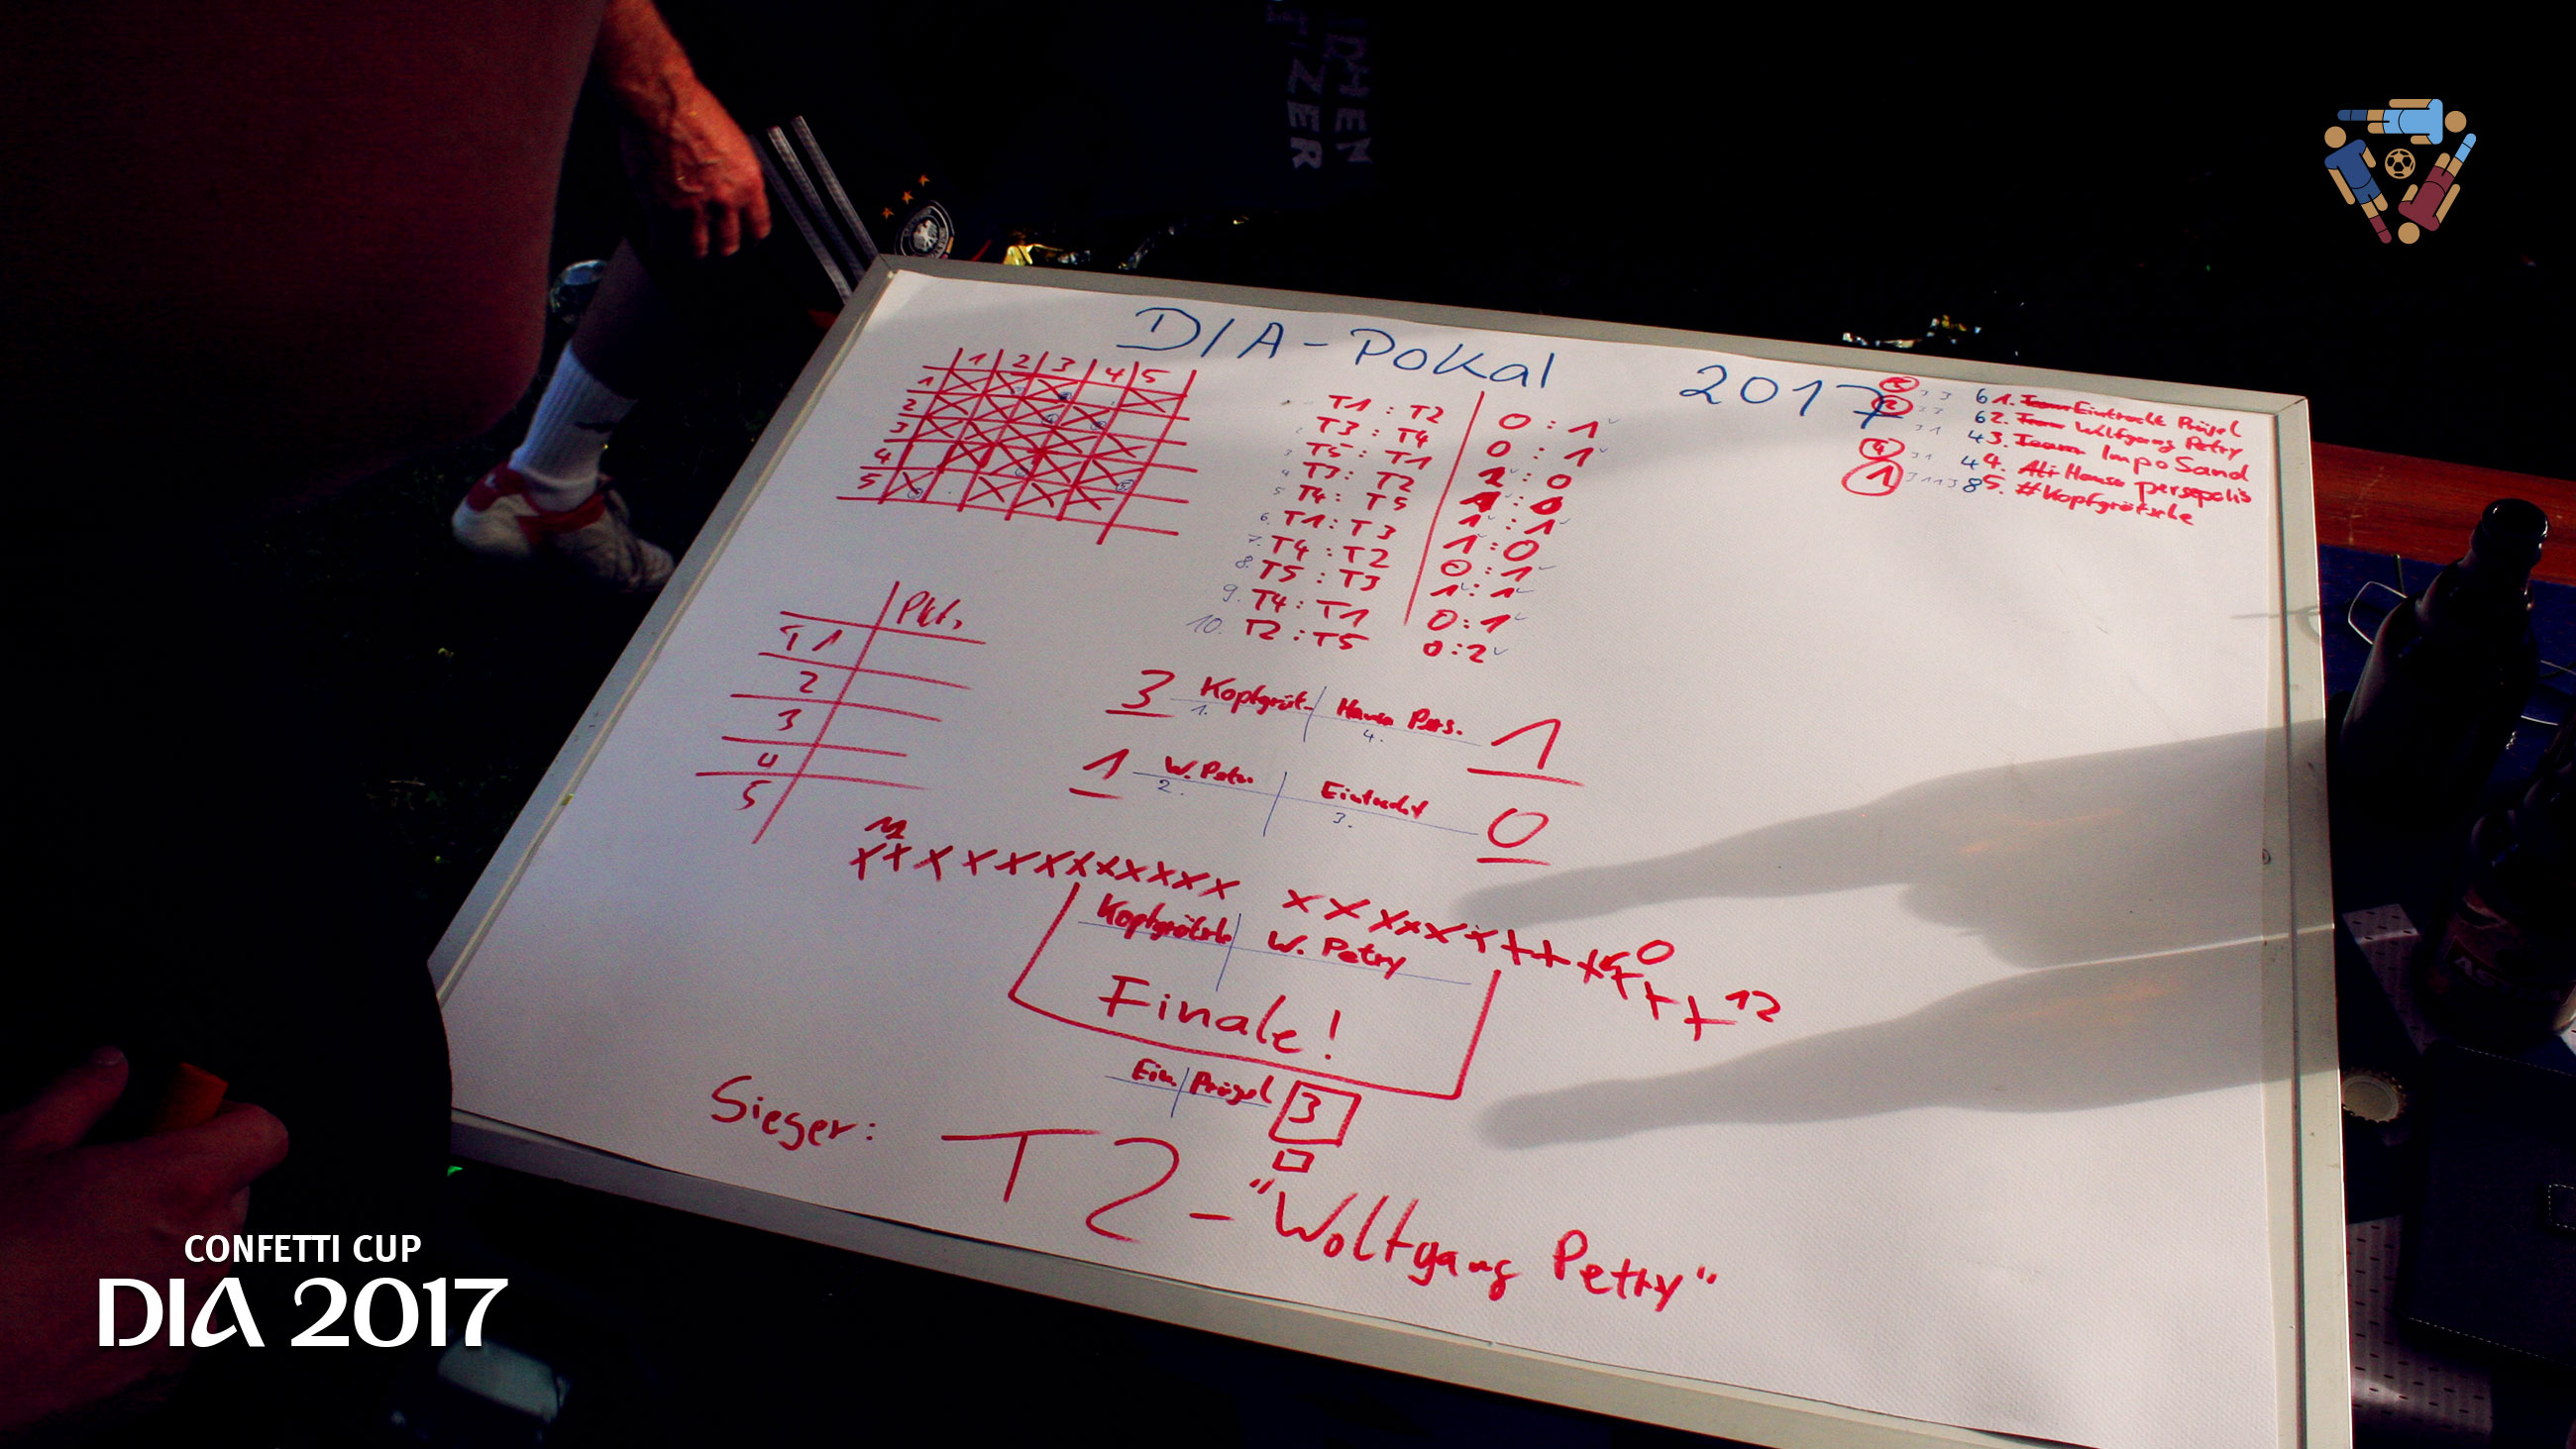 DIA-Pokal 2017
1 2 3 4 5
1
2
3
4
5
T1 : T2 0 : 1
T3 : T4 0 : 1
T5 : T1 1 : 0
T3 : T2
T4 : T5 1 : 1
6. T1 : T3 1 : 0
7. T4 : T2 0 : 1
8. T5 : T3 1 : 1
9. T4 : T1 0 : 1
10. T2 : T5 0 : 2
6 1. Team Eintracht Prügel
6 2. Team Wolfgang Petry
4 3. Team Impo Sand
4 4. Ali Hansa persepolis
1 3 1 1 3 8 5. #Kopfgrätsche
Pkt.
T1
2
3
4
5
3 Kopfgrät- Hansa Pers. 1
1. 4.
1 W. Petr. Eintracht 0
2. 3.
12
x x x x x x x x x x x x
x x x x x x x x x x x x 12
Kopfgrätsche W. Petry
Finale!
Ein. Prügel 3
Sieger: T2 - "Wolfgang Petry"
CONFETTI CUP
DIA 2017